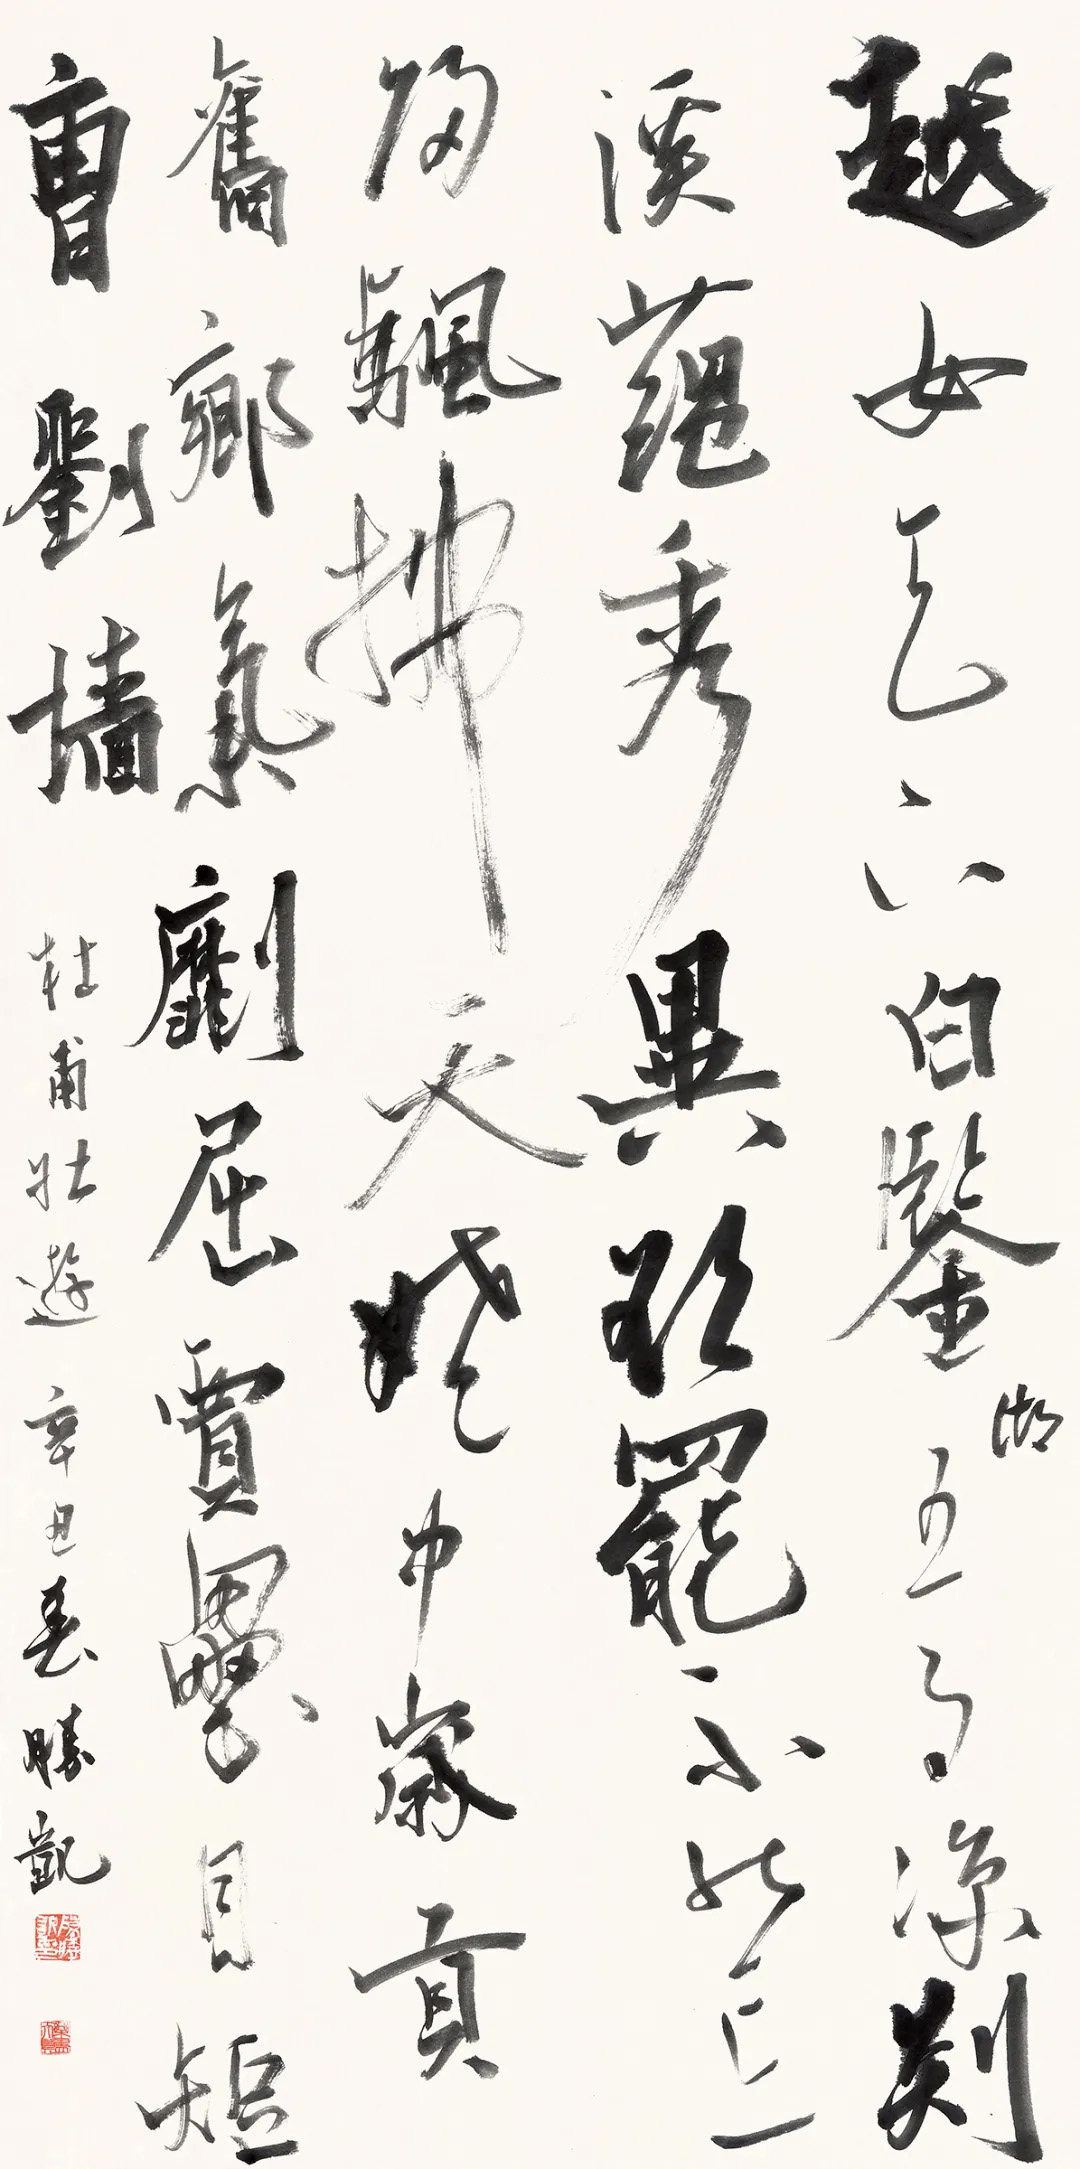 越女天下白鑒湖五月涼剡
溪蘊秀異欲罷不能忘
歸颿拂天姥中歲貢
舊鄉氣劘屈賈壘目短
曹劉墻 杜甫壯遊 辛丑春勝凱